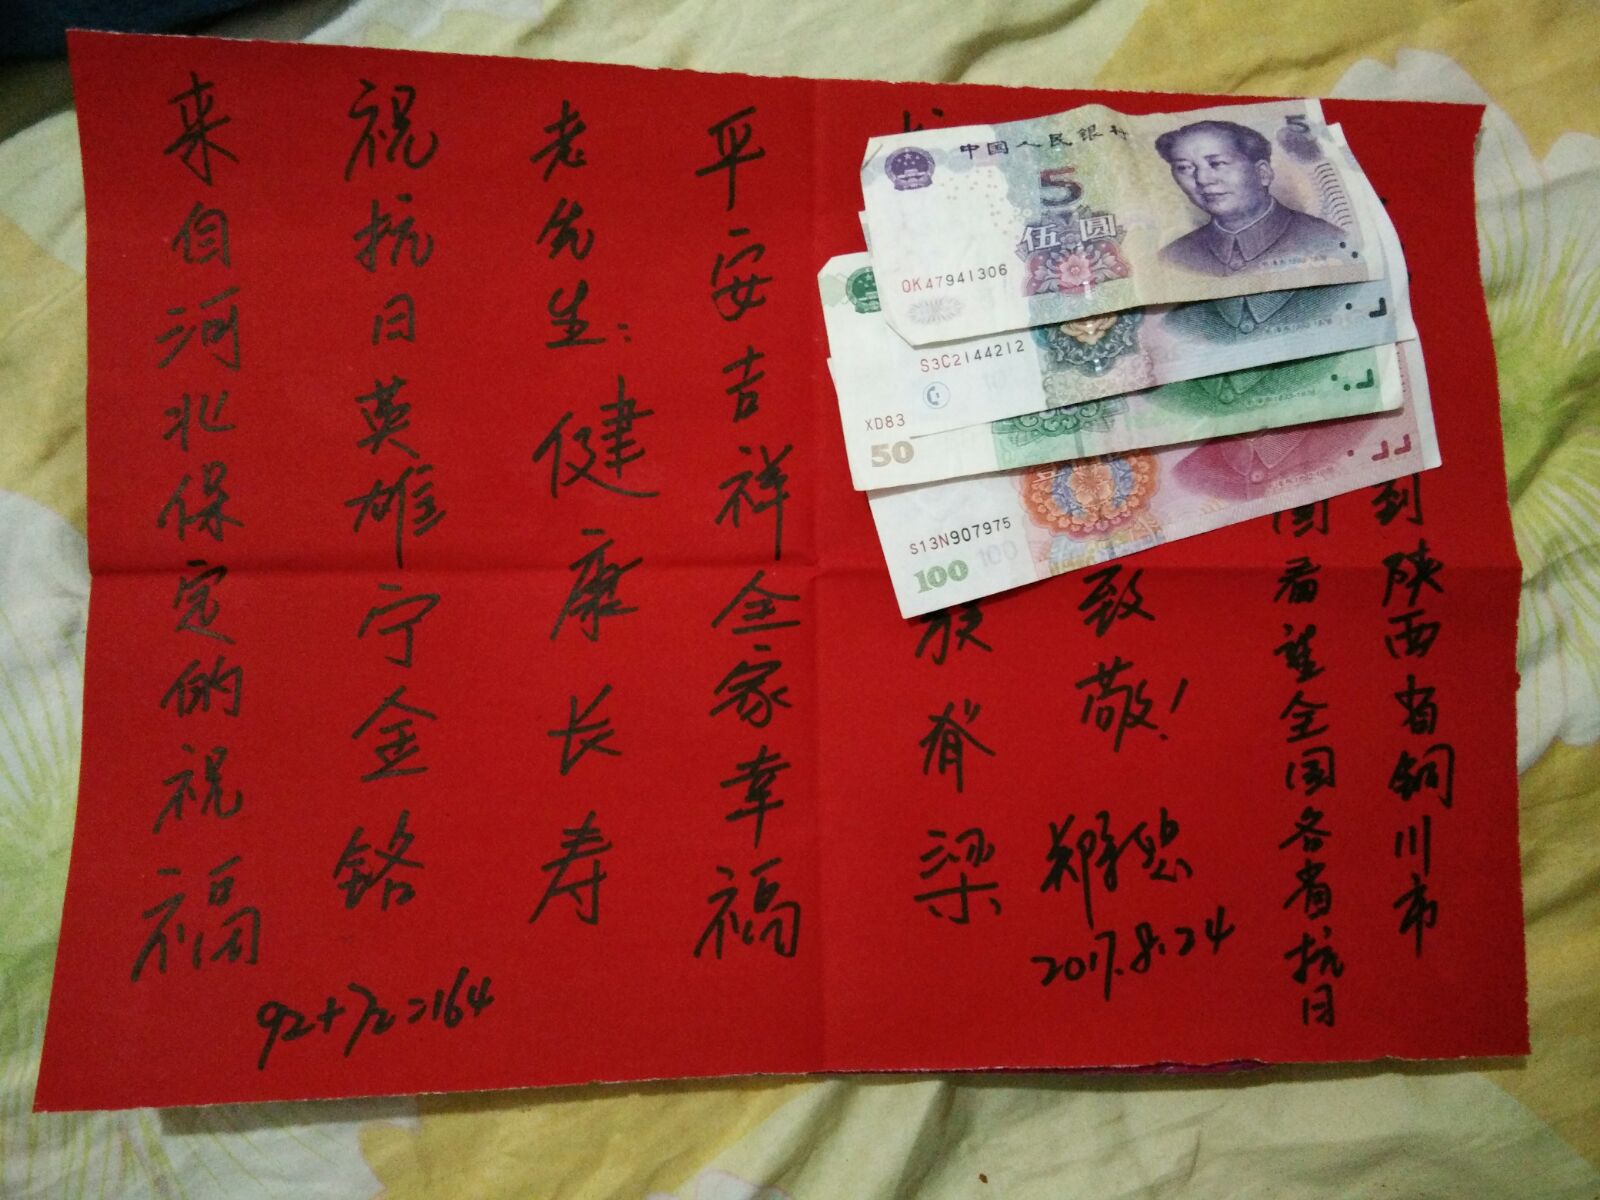 来自河北保定的祝福
祝抗日英雄宁金铭
老先生:健康长寿
平安吉祥全家幸福
族脊梁
致敬!
国看望全国各省抗日
到陕西省铜川市
2017.8.24
92+72=164
中国人民银行
5
伍圆
5
OK47941306
S3C2144212
XD83
50
S13N907975
100